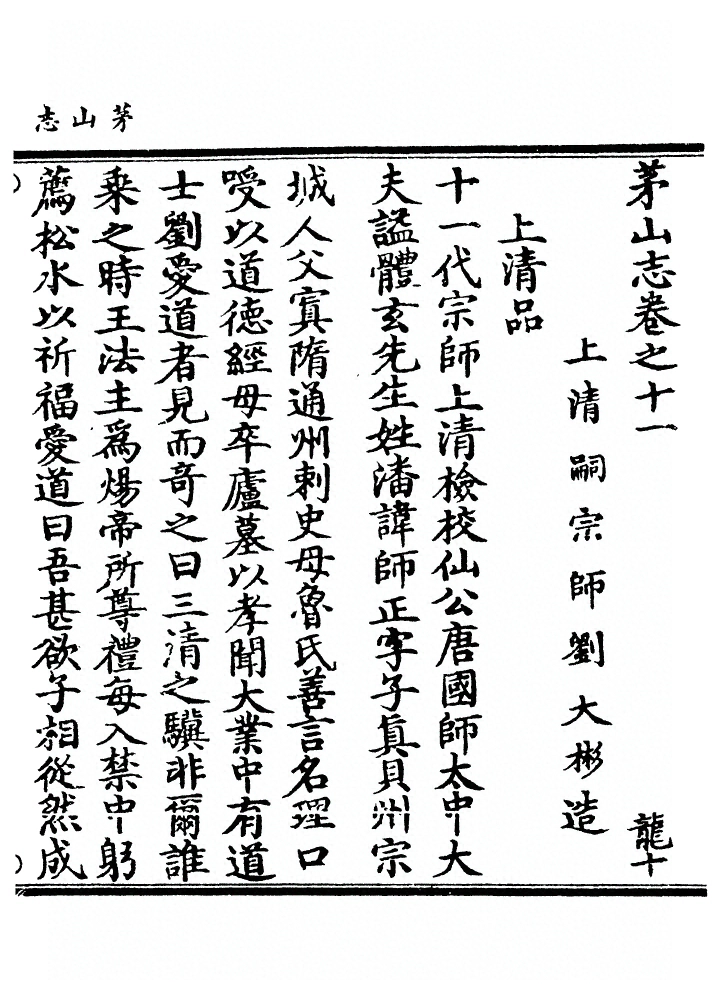 茅山志
茅山志卷之十一
龍十
上清嗣宗師劉大彬造
上清品
十一代宗師上清檢校仙公唐國師太中大
夫謚體玄先生姓潘諱師正字子眞貝州宗
城人父寘隋通州刺史母魯氏善言名理口
受以道德經母卒廬墓以孝聞大業中有道
士劉愛道者見而奇之曰三清之驥非爾誰
乗之時王法主爲煬帝所尊禮每入禁中躬
薦松水以祈福愛道曰吾甚欲子相從然成